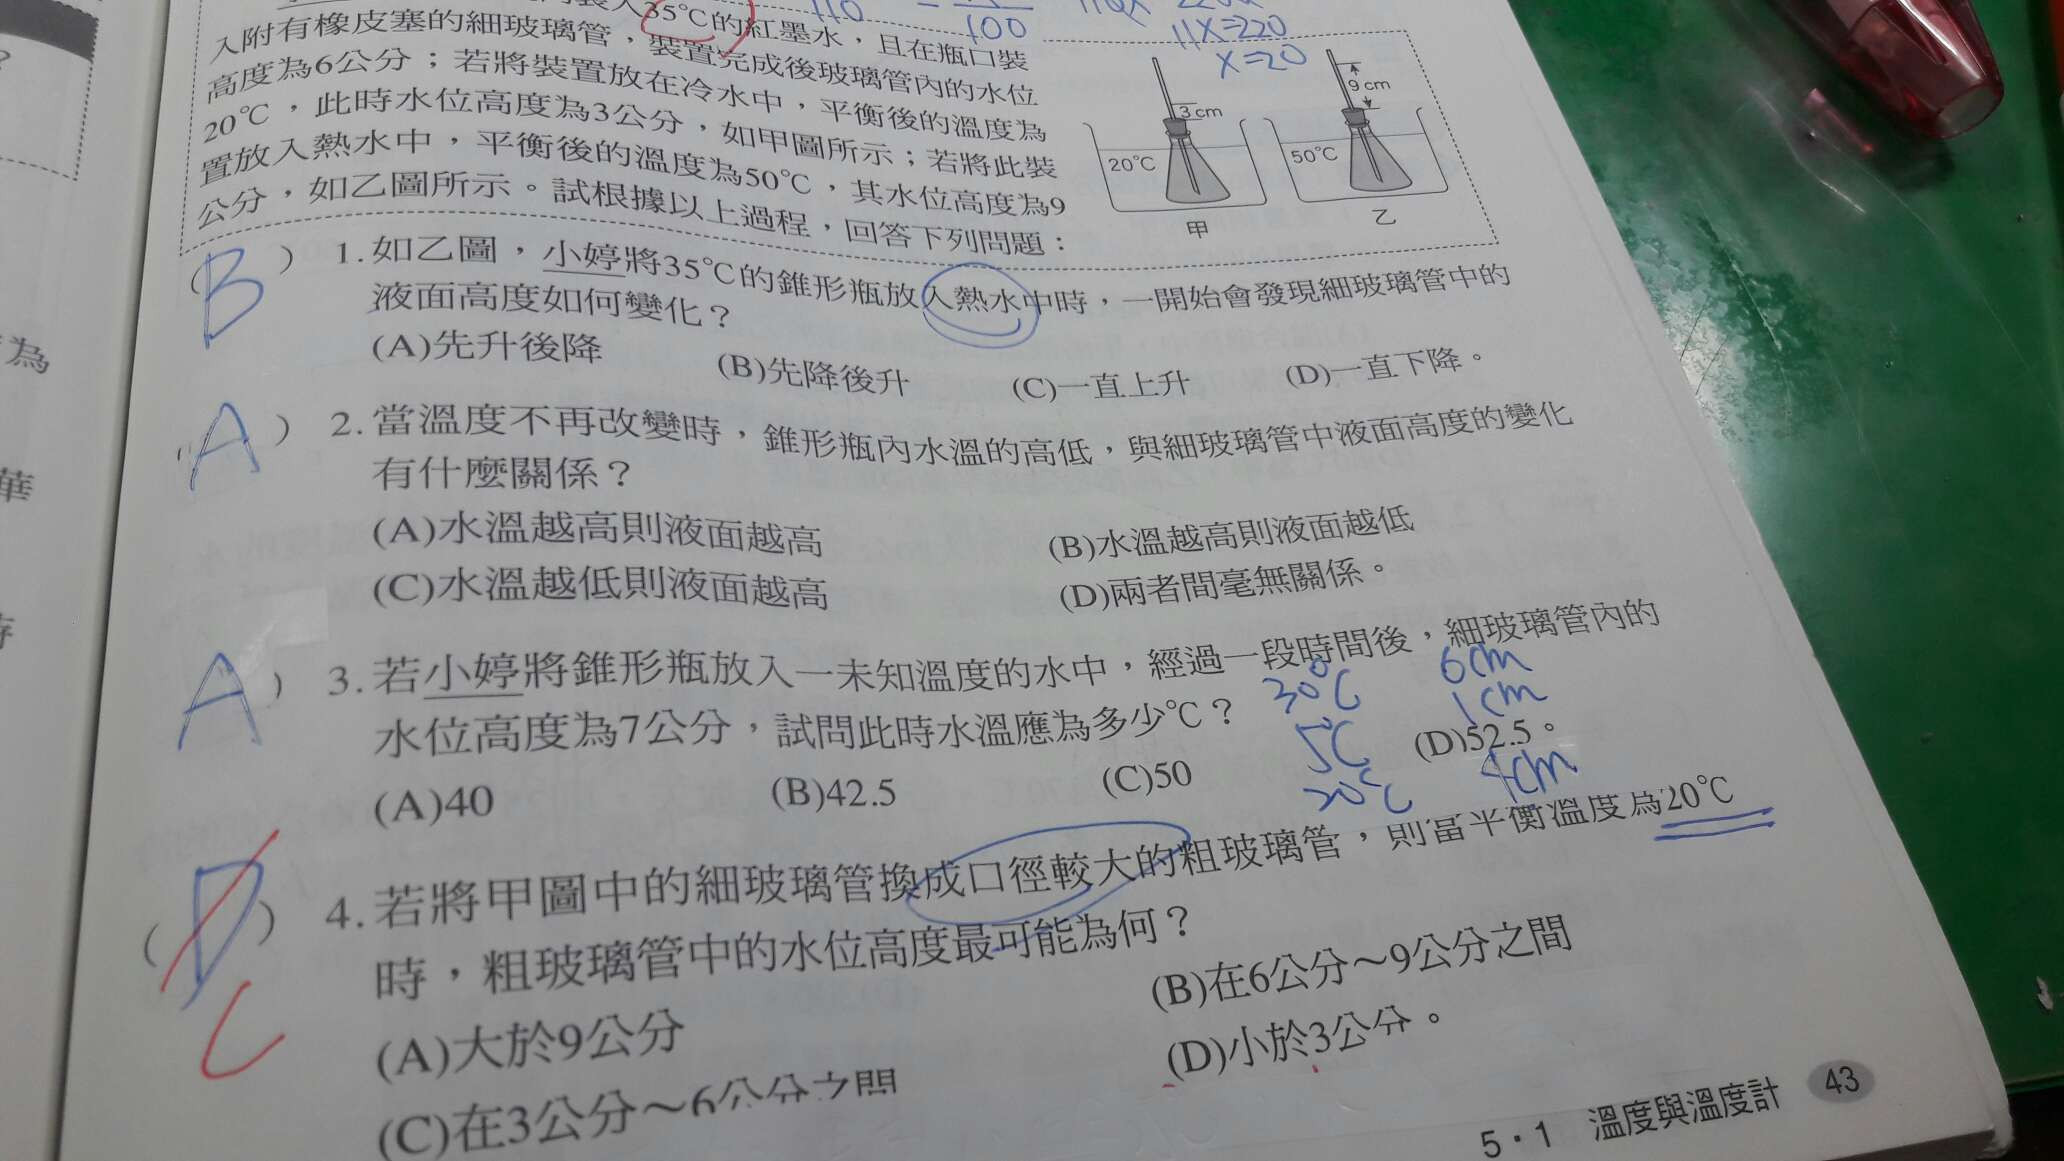 裝入35℃的紅墨水,且在瓶口裝
入附有橡皮塞的細玻璃管,裝置完成後玻璃管內的水位
高度為6公分;若將裝置放在冷水中,平衡後的溫度為
20℃,此時水位高度為3公分,如甲圖所示;若將此裝
置放入熱水中,平衡後的溫度為50℃,其水位高度為9
公分,如乙圖所示。試根據以上過程,回答下列問題:
110
100
11X=220
X=20
3 cm
20℃
甲
9 cm
50℃
乙
(B) 1.如乙圖,小婷將35℃的錐形瓶放入熱水中時,一開始會發現細玻璃管中的
液面高度如何變化?
(A)先升後降 (B)先降後升 (C)一直上升 (D)一直下降。
(A) 2.當溫度不再改變時,錐形瓶內水溫的高低,與細玻璃管中液面高度的變化
有什麼關係?
(A)水溫越高則液面越高 (B)水溫越高則液面越低
(C)水溫越低則液面越高 (D)兩者間毫無關係。
(A) 3.若小婷將錐形瓶放入一未知溫度的水中,經過一段時間後,細玻璃管內的
水位高度為7公分,試問此時水溫應為多少℃?
30℃ 6cm
5℃ 1cm
20℃ 4cm
(A)40 (B)42.5 (C)50 (D)52.5。
(D) 4.若將甲圖中的細玻璃管換成口徑較大的粗玻璃管,則當平衡溫度為20℃
時,粗玻璃管中的水位高度最可能為何?
C
(A)大於9公分 (B)在6公分~9公分之間
(C)在3公分~6公分之間 (D)小於3公分。
5・1 溫度與溫度計 43
為
華